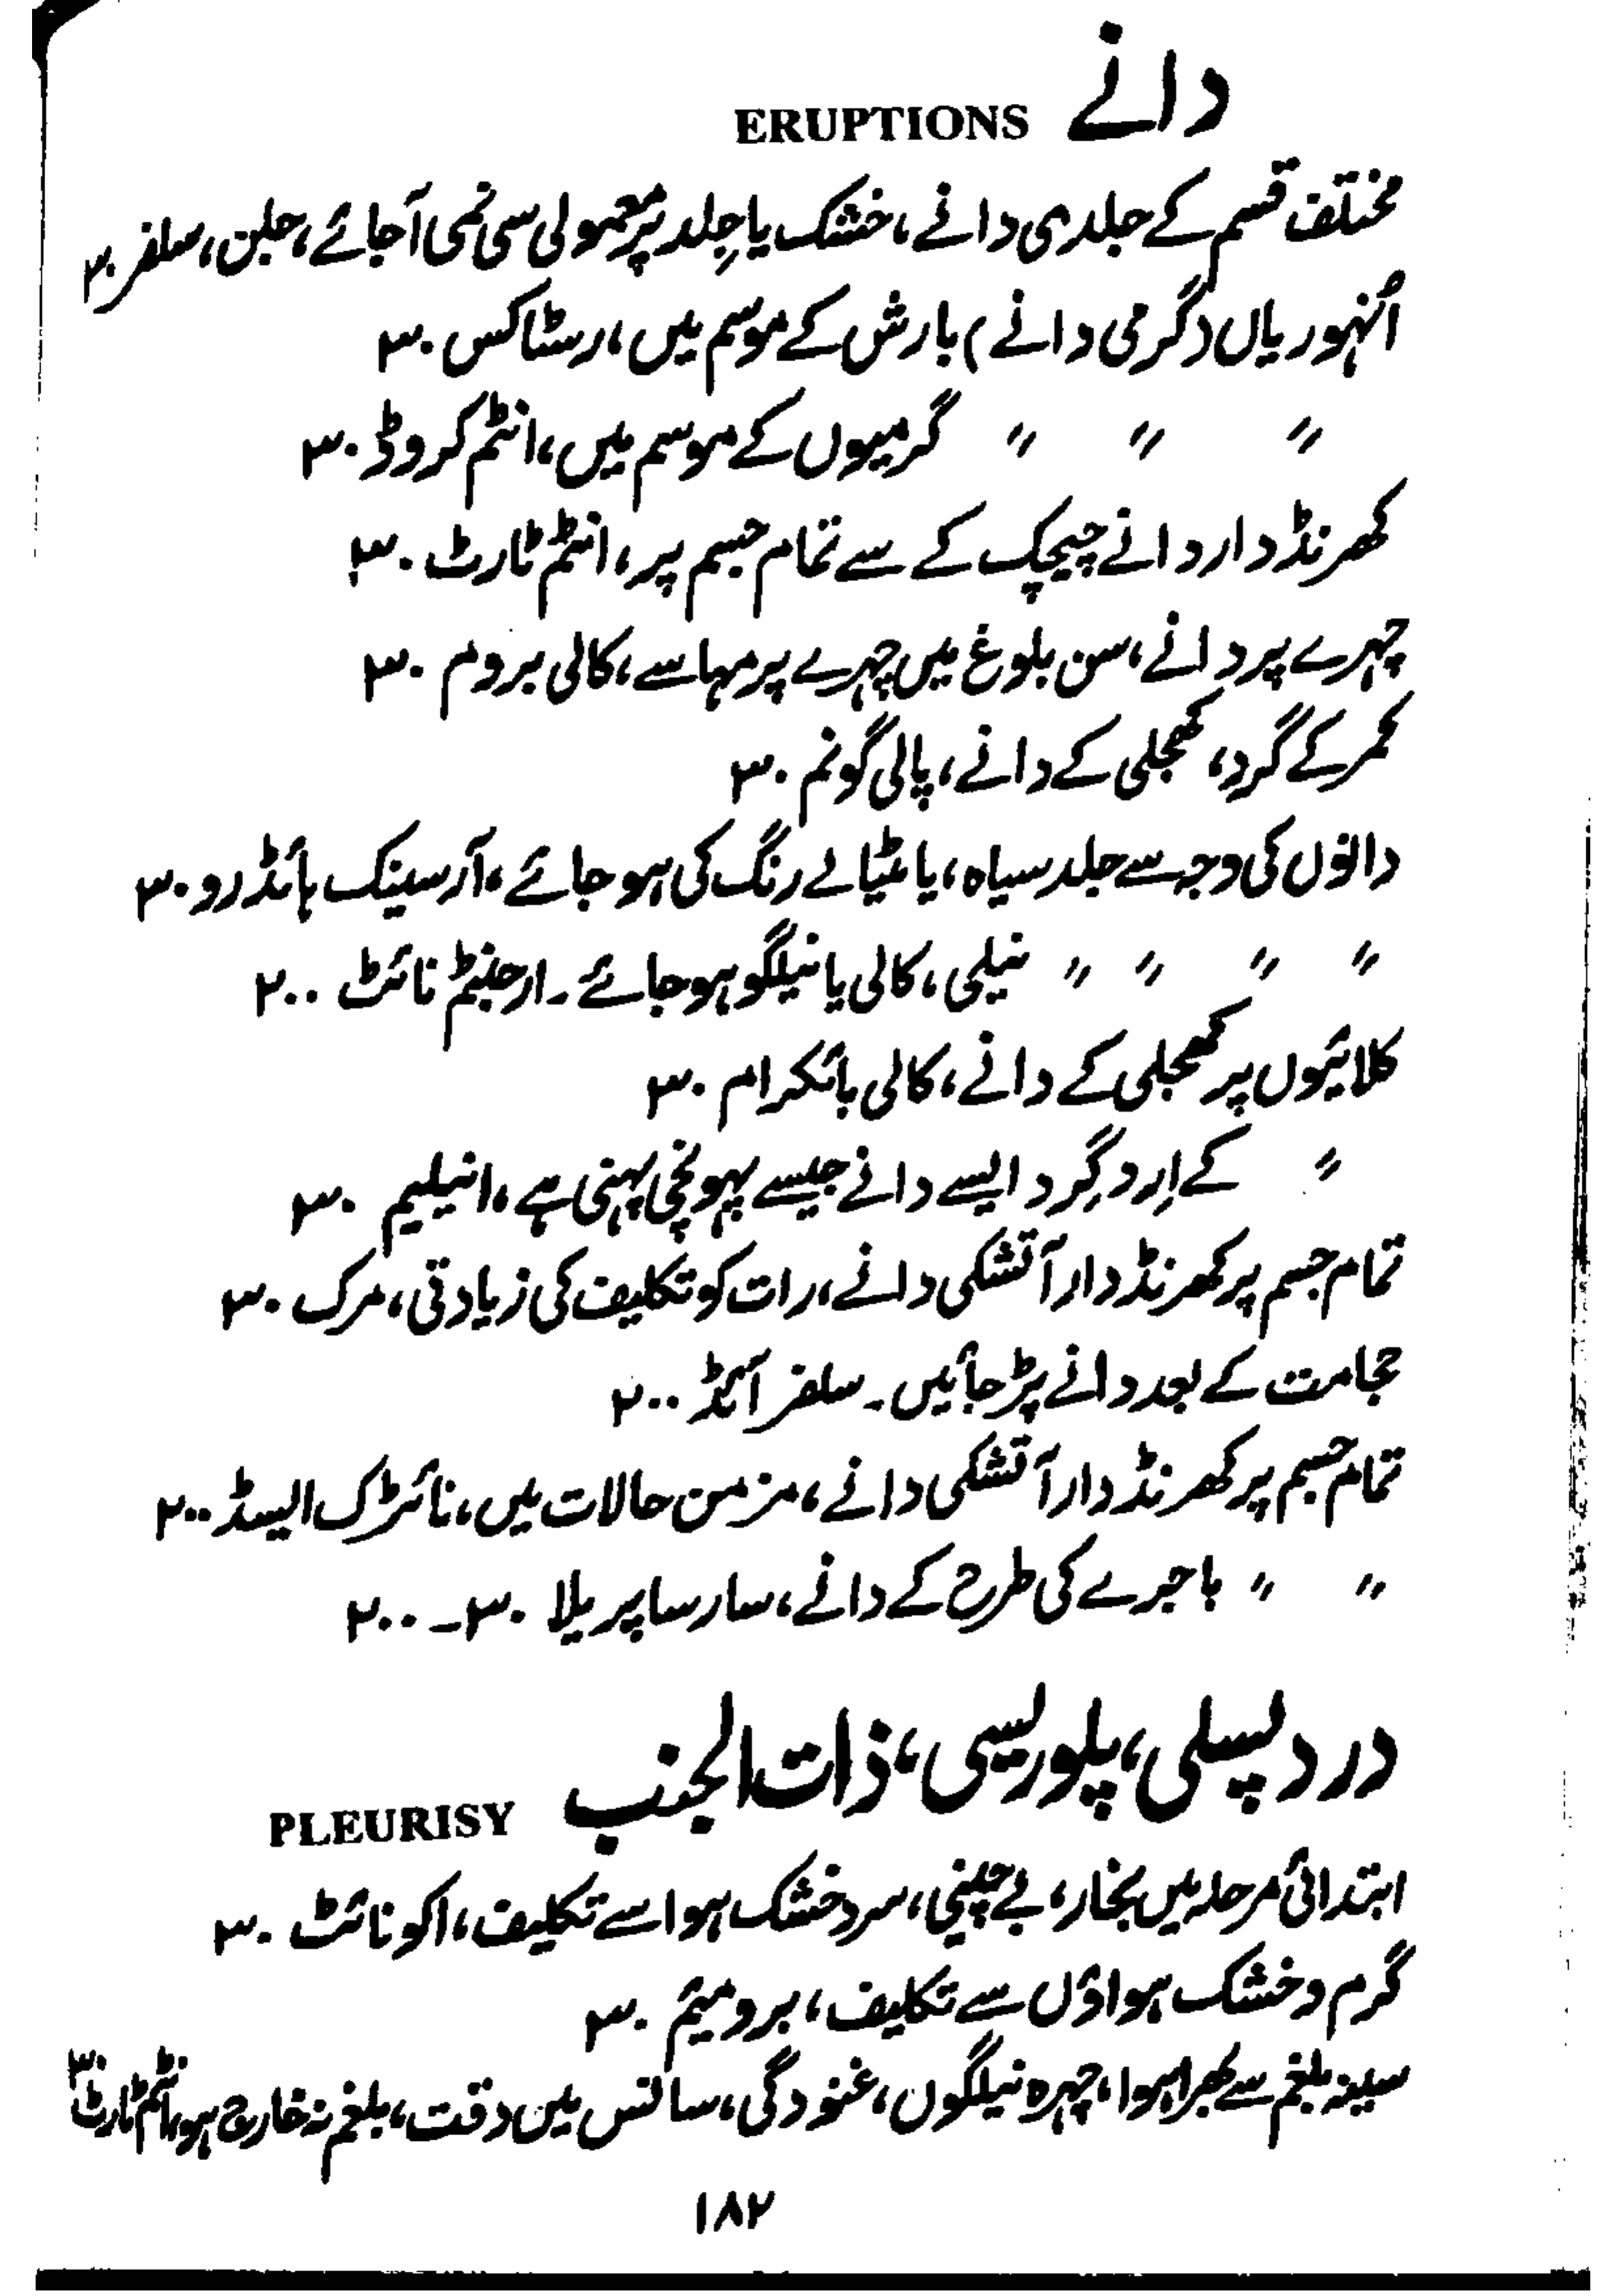 دانے ERUPTIONS
مختلف قسم کے جلدی دانے، خشک یا جِلد پر معمولی سی نمی آجائے، جلن، سلفر ۳۰
اُنہوریاں (گرمی دانے) بارش کے موسم میں، رسٹاکس ۳۰
〃 〃 〃 گرمیوں کے موسم میں، انٹم کروڈ ۳۰
کھرنڈ دار دانے چیچک کے سے تمام جسم پر، انٹم ٹارٹ ۳۰
چہرے پر دانے، سن بلوغ میں چہرے پر مہاسے، کالی بروم ۳۰
کمر کے گرد، کھجلی کے دانے، پالی گونم ۳۰
دانوں کی وجہ سے جلد سیاہ، یا مٹیالے رنگ کی ہو جائے، آرسینک ہائڈرو ۳۰
〃 〃 〃 〃 نیلی، کالی یا نیلگو ہو جائے ۔ ارجنٹم نائٹ ۲۰۰
کلائیوں پر کھجلی کے دانے، کالی بائکرام ۳۰
〃 کے اِرد گِرد ایسے دانے جیسے پہونچی پہنی ہے، انیلیم ۳۰
تمام جسم پر کھرنڈ دار آتشکی دانے، رات کو تکلیف کی زیادتی، مرک ۳۰
حجامت کے بعد دانے پڑ جائیں ۔ سلفر آئڈ ۲۰۰
تمام جسم پر کھرنڈ دار آتشکی دانے، مزمن حالات میں، نائٹرک ایسڈ ۲۰۰
〃 〃 باجرے کی طرح کے دانے، سارساپریلا ۳۰ ۔ ۲۰۰
درد پسلی، پلوریسی، ذات الجنب PLEURISY
ابتدائی مرحلہ میں بخار، بے چینی، سرد خشک ہوا سے تکلیف، اکونائٹ ۳۰
گرم و خشک ہواؤں سے تکلیف، برومیئم ۳۰
سینہ بلغم سے بھرا ہوا، چہرہ نیلگوں، غنودگی، سانس میں دقت، بلغم نہ خارج ہو، انٹم ٹارٹ ۳۰
۱۸۲